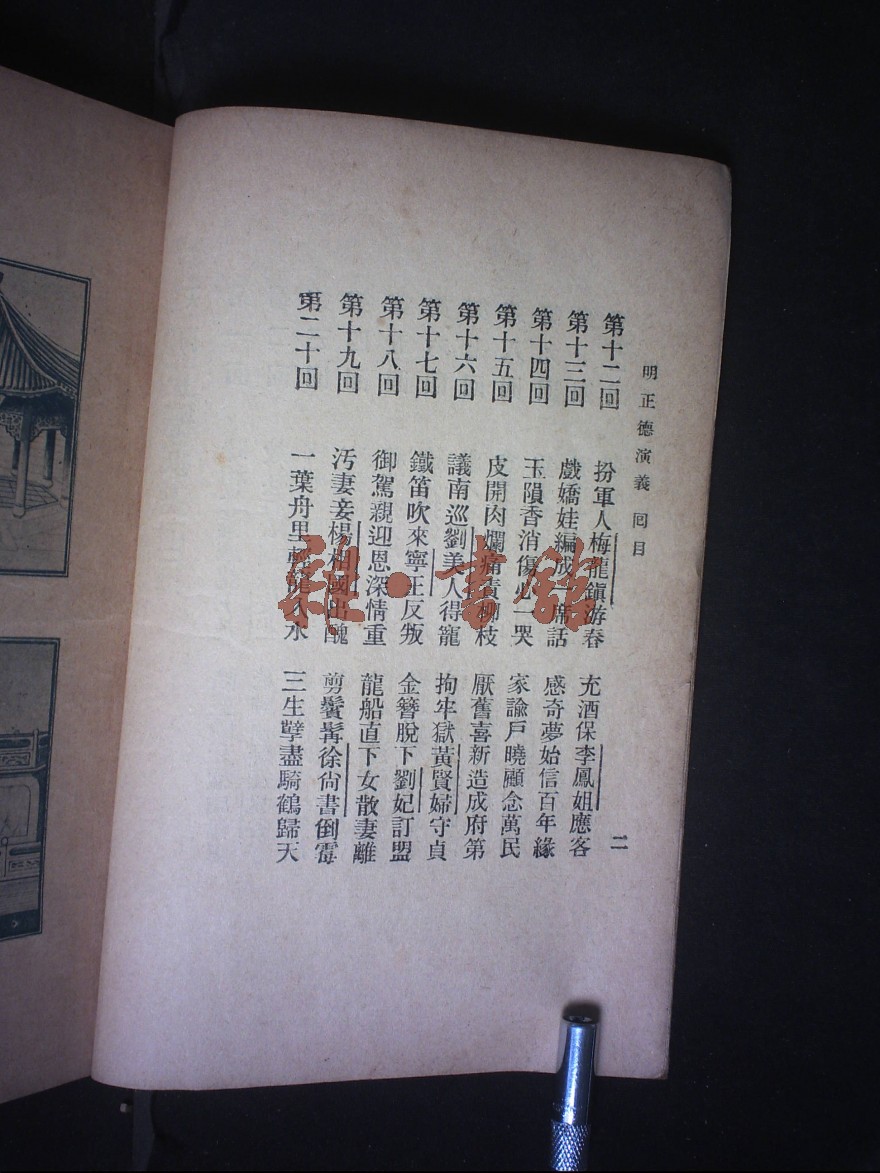 明正德演義 回目
二
第十二回 扮軍人梅龍鎭游春 充酒保李鳳姐應客
第十三回 戲嬌娃編成一席話 感奇夢始信百年緣
第十四回 玉隕香消傷心一哭 家諭戶曉顧念萬民
第十五回 皮開肉爛痛責柳枝 厭舊喜新造成府第
第十六回 議南巡劉美人得寵 拘牢獄黃賢婦守貞
第十七回 鐵笛吹來寧王反叛 金簪脫下劉妃訂盟
第十八回 御駕親迎恩深情重 龍船直下女散妻離
第十九回 汚妻妾楊相國出醜 剪鬢髯徐尙書倒霉
第二十回 一葉舟里龍入水 三生孽盡騎鶴歸天